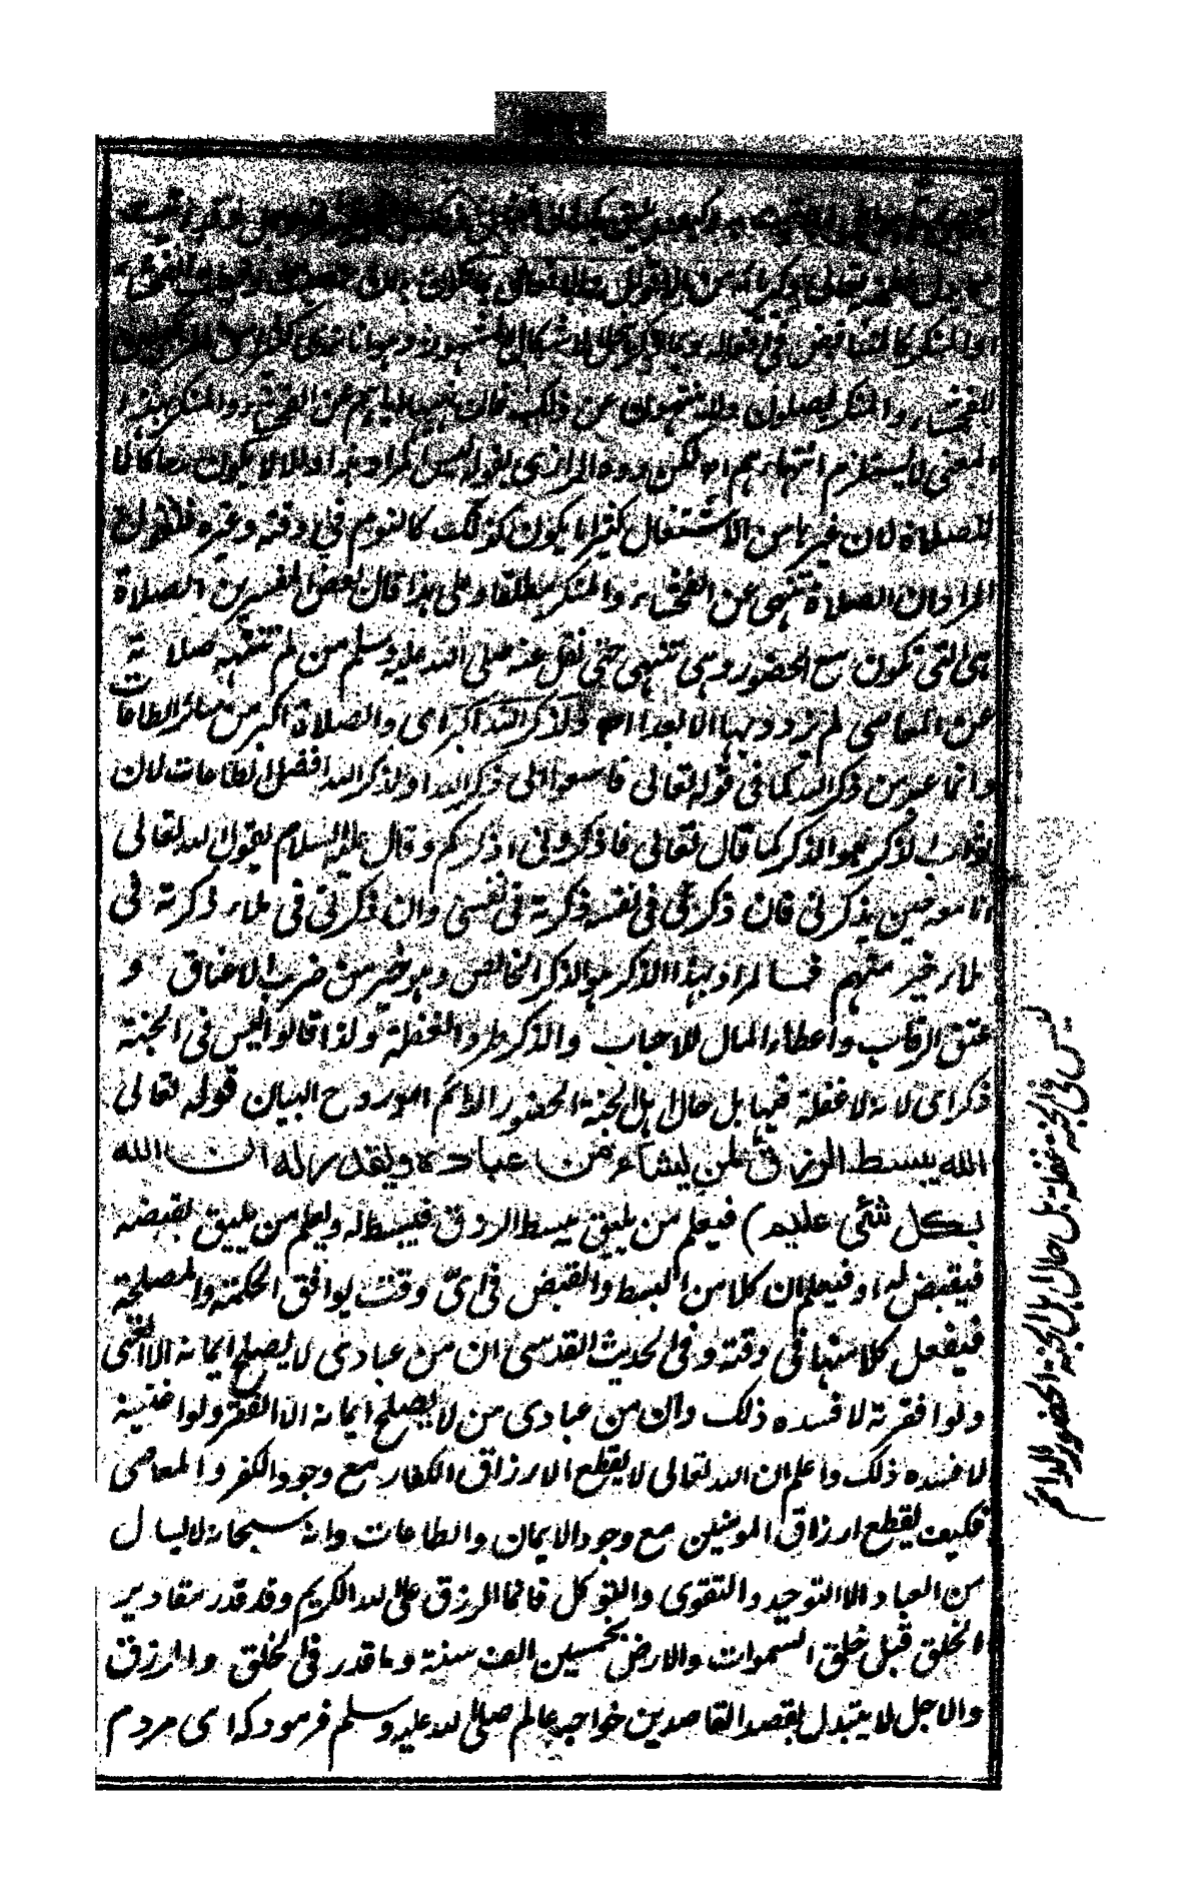 او المنكر كالتناقض في
للفحشاء والمنكر يصلون ولا ينتهون عن ذلك فان نهيها اياهم عن الفحشاء والمنكر بهذا
المعنى لا يستلزم انتهاءهم لكن رده الرازي بقوله ليس المراد هذا والا لا يكون مدحا كاملا
للصلاة لان غيرها من الاشتغال كثيرا ما يكون كذلك كالنوم في وقته وغيره فنقول
المراد ان الصلاة تنهى عن الفحشاء والمنكر مطلقا وعلى هذا قال بعض المفسرين الصلاة
هى التى تكون مع الحضور وهى تنهى حتى نقل عنه صلى الله عليه وسلم من لم تنهه صلاته
عن المعاصى لم يزدد بها الا بعدا اه ولذكر الله اكبر اى والصلاة اكبر من سائر الطاعات
وانما عبر من ذكر الله كما فى قوله تعالى فاسعوا الى ذكر الله او ولذكر الله افضل الطاعات لان
ثواب الذكر هو الذكر كما قال تعالى فاذكرونى اذكركم وقال عليه السلام يقول الله تعالى
انا مع حين يذكرنى فان ذكرنى فى نفسه ذكرته فى نفسى وان ذكرنى فى ملاء ذكرته فى
ملاء خير منهم فالمراد بهذا الذكر هو الذكر الخالص وهو خير من ضرب الاعناق و
عتق الرقاب واعطاء المال للاحباب والذكر طرد الغفلة ولذا قالوا ليس فى الجنة
ذكر اى لانه لا غفلة فيها بل حال اهل الجنة الحضور الدائم اه روح البيان قوله تعالى
الله يبسط الرزق لمن يشاء من عباده ويقدر له ان الله
بكل شئى عليم) فيعلم من يليق ببسط الرزق فيبسط له ويعلم من يليق بقبضه
فيقبض له او فيعلم ان كلا من البسط والقبض فى اى وقت يوافق الحكمة والمصلحة
فيفعل كلا منهما فى وقته وفى الحديث القدسى ان من عبادى لا يصلح ايمانه الا الغنى
ولو افقرته لافسده ذلك وان من عبادى من لا يصلح ايمانه الا الفقر ولو اغنيته
لافسده ذلك واعلم ان الله تعالى لا يقطع الارزاق الكفار مع وجود الكفر والمعاصى
فكيف يقطع ارزاق المومنين مع وجود الايمان والطاعات وانه سبحانه لا يسال
من العباد الا التوحيد والتقوى والتوكل فانما الرزق على الله الكريم وقد قدر مقادير
الخلق قبل خلق السموات والارض بخمسين الف سنة وما قدر فى الخلق والرزق
والاجل لا يتبدل بقصد القاصدين خواجه عالم صلى الله عليه وسلم فرمود كه اى مردم
ليس فى الجنة غفلة بل حال اهل الجنة الحضور الدائم